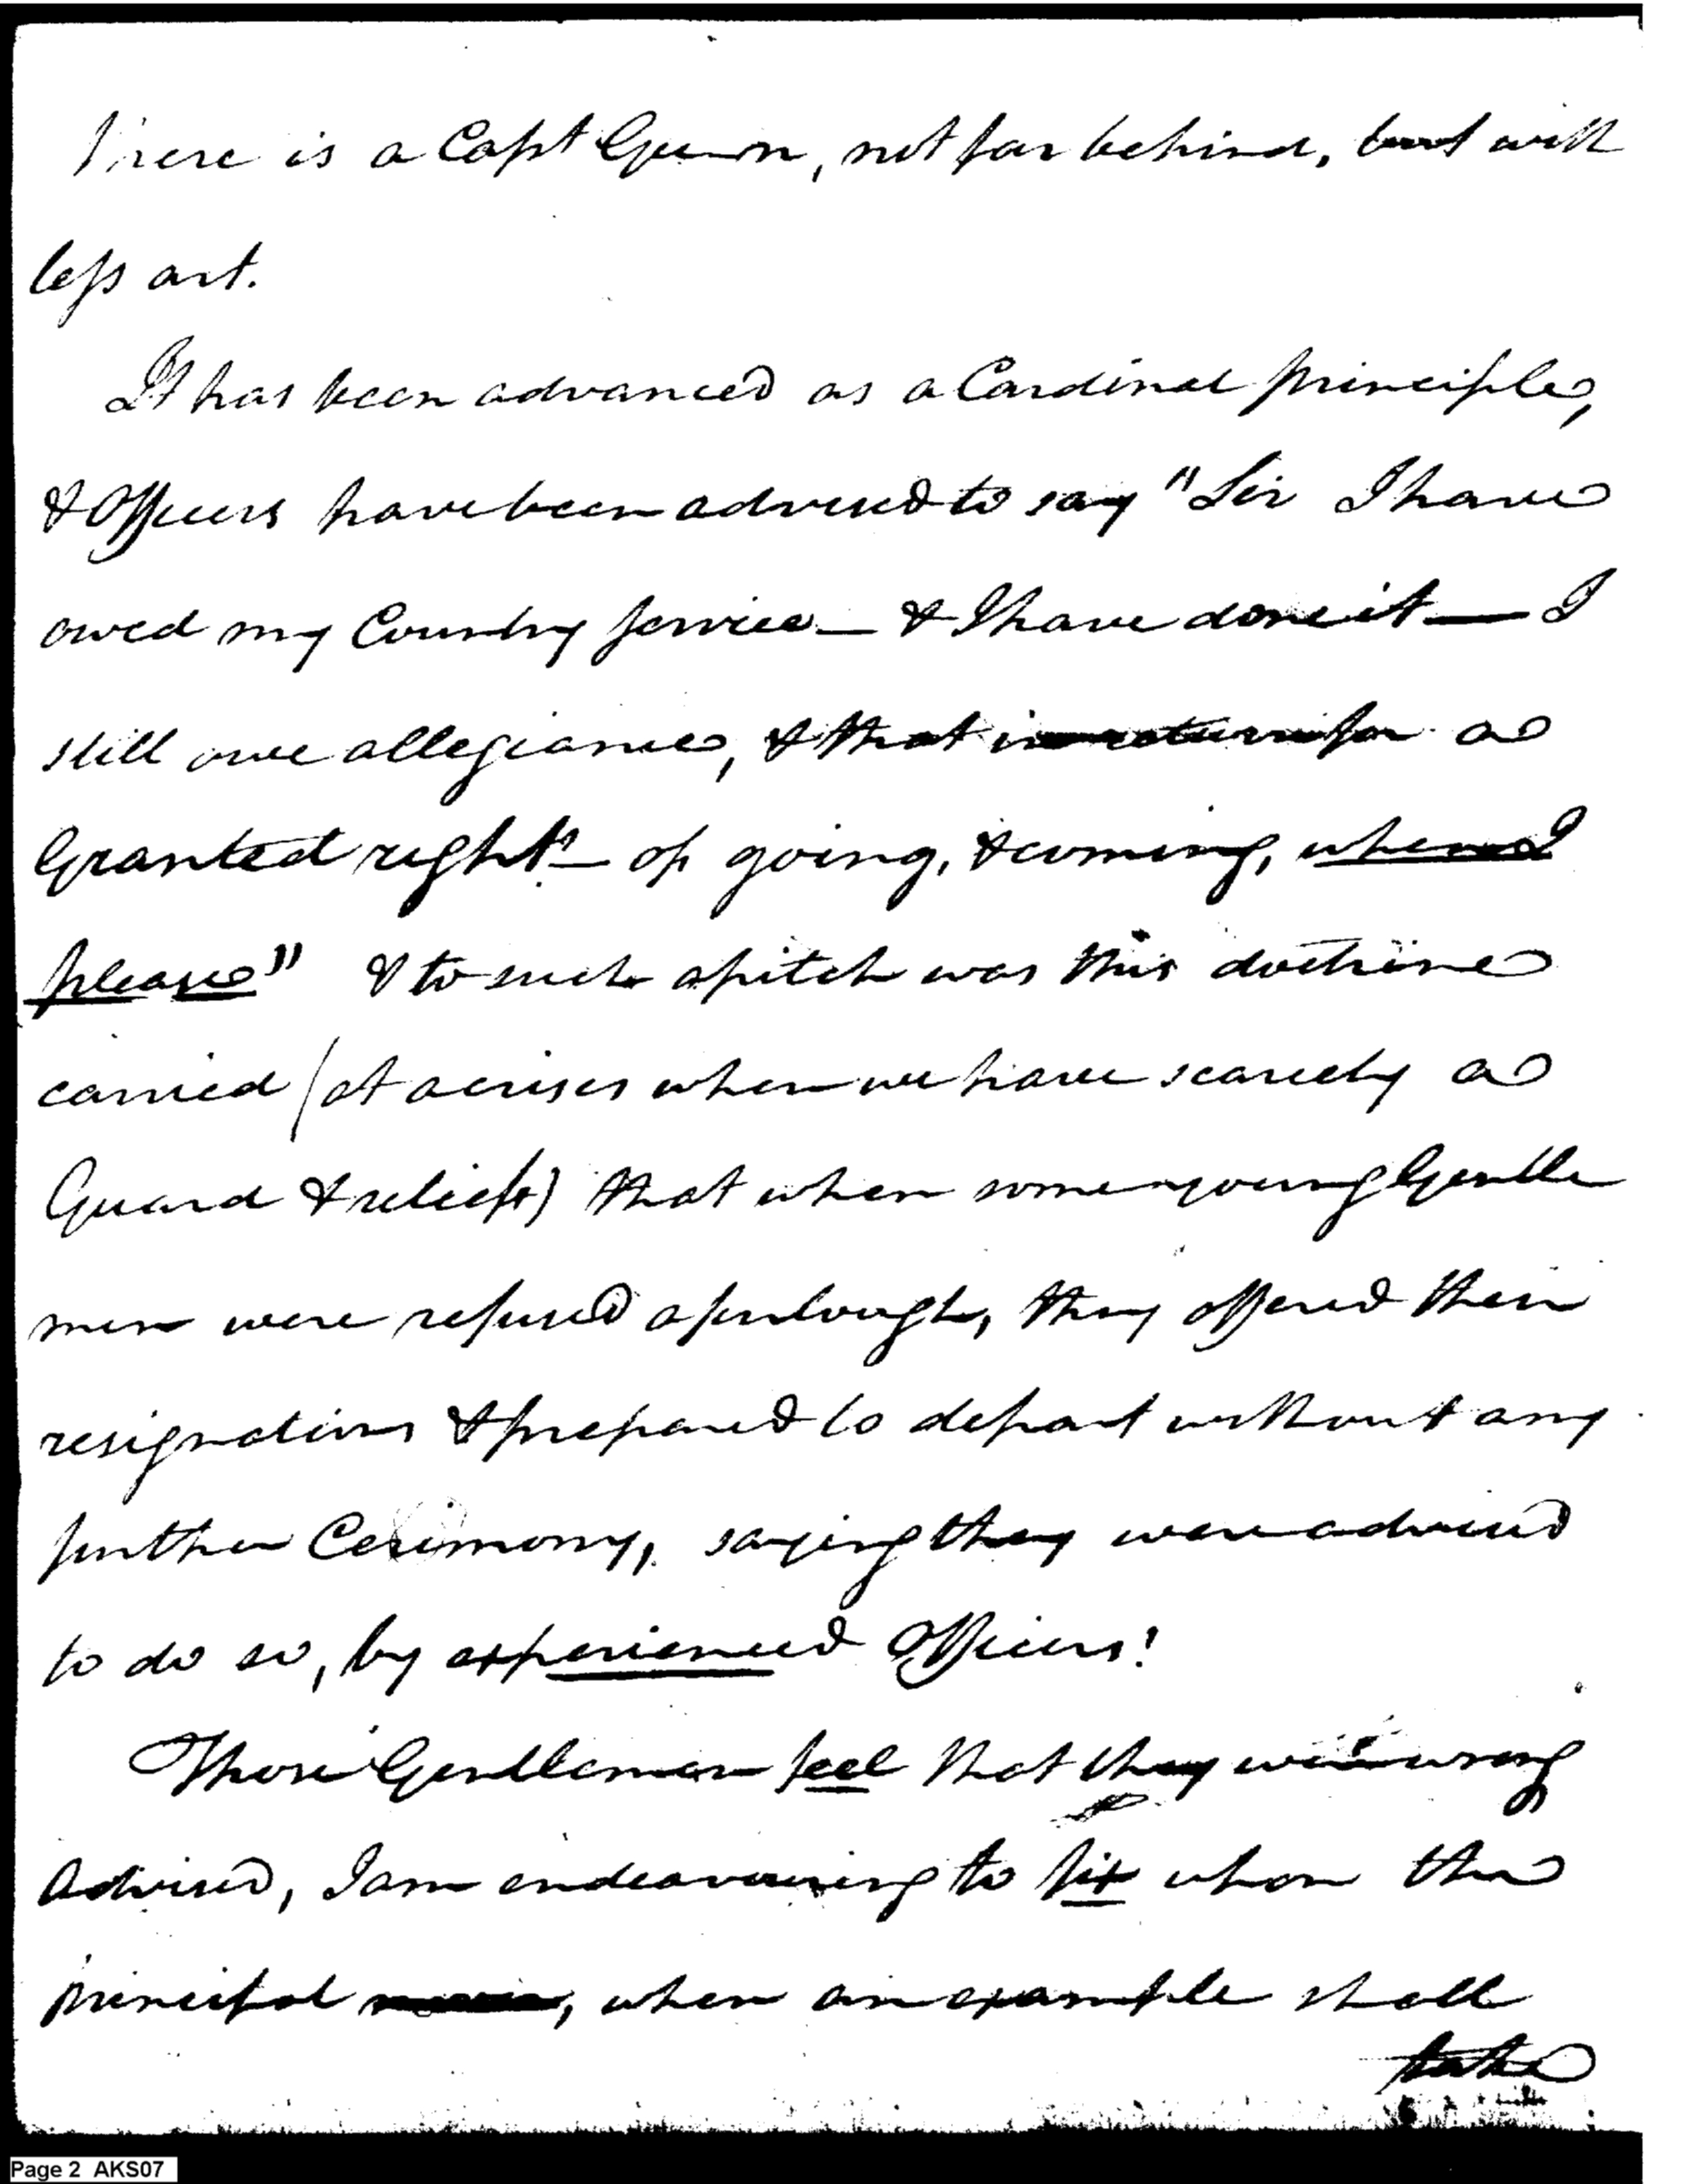 There is a Capt Gunn, not far behind, but with
less art.
It has been advanced as a Cardinal principle,
& Officers have been advised to say "Sir I have
owed my Country service — & I have done it — I
still owe allegiance, & that in return for a
Granted right — of going, & coming, when I
please" & to such a pitch was this doctrine
carried (at a crises when we have scarcely a
Guard & relief) that when some young Gentle
men were refused a furlough, they offered their
resignations & prepared to depart without any
further Ceremony, saying they were advised
to do so, by experienced Officers!
Those Gentlemen feel that they were wrong
advised, I am endeavouring to fix upon the
principal mover, when an example shall
take
Page 2 AKS07